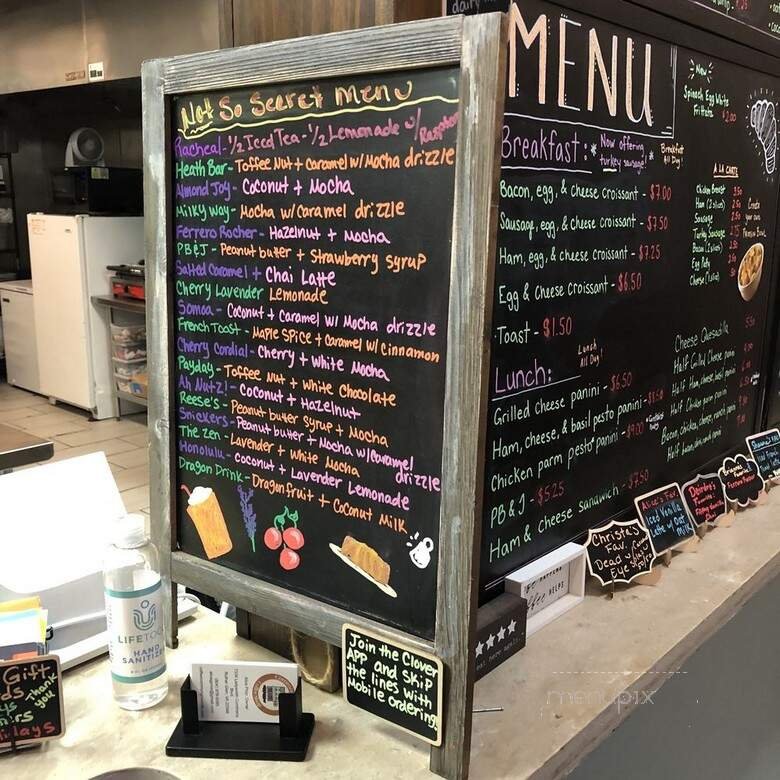 Not So Secret Menu
Racheal - 1/2 Iced Tea - 1/2 Lemonade w/
Heath Bar - Toffee Nut + Caramel w/ Mocha drizzle
Almond Joy - Coconut + Mocha
Milky Way - Mocha w/ Caramel drizzle
Ferrero Rocher - Hazelnut + Mocha
PB&J - Peanut butter + Strawberry syrup
Salted Caramel + Chai Latte
Cherry Lavender Lemonade
Somoa - Coconut + Caramel w/ Mocha drizzle
French Toast - Maple Spice + Caramel w/ Cinnamon
Cherry Cordial - Cherry + White Mocha
Payday - Toffee Nut + White Chocolate
Ah Nutz! - Coconut + Hazelnut
Reese's - Peanut butter syrup + Mocha
Snickers - Peanut butter + Mocha w/ Caramel drizzle
The Zen - Lavender + White Mocha
Honolulu - Coconut + Lavender Lemonade
Dragon Drink - Dragonfruit + Coconut Milk
MENU
Breakfast: Now offering
turkey sausage!
Breakfast
All Day!
Bacon, egg, & cheese croissant - $7.00
Sausage, egg, & cheese croissant - $7.50
Ham, egg, & cheese croissant - $7.25
Egg & cheese croissant - $6.50
Toast - $1.50
Lunch
All Day!
Lunch:
Grilled cheese panini - $6.50
Ham, cheese, & basil pesto panini - $8.50
Chicken parm pesto panini - $9.00
PB & J - $5.25
Ham & cheese sandwich - $7.50
New
Spinach Egg White
Frittata $2.00
A LA CARTE
Chicken Breast 3.50
Ham (2 slices) 2.50
Sausage 2.50
Turkey Sausage 2.75
Bacon (2 slices) 2.50
Egg Patty
Cheese (1 slice)
Create
your own
Cheese Quesadilla 5.50
Half Grilled Cheese panini
Half Ham, cheese, basil panini
Half Chicken parm panini
Christa's
Fav.
Dead
Eye
Alice's Fav.
Iced Vanilla
Latte w/ Oat
milk
Deirdre's
Favorite!
Join the Clover
App and skip
the lines with
Mobile ordering!
LIFETOGO
HAND
SANITIZER
HELPS
eat here again.
Gift
menupix